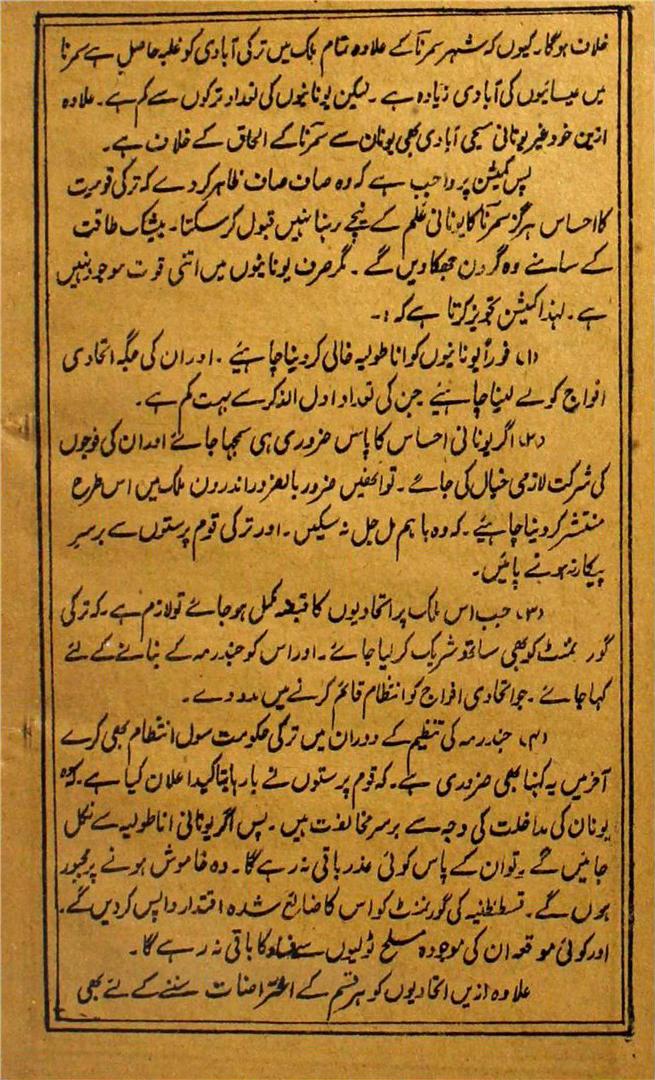 خلاف ہوگا۔ کیوں کہ شہر سمرنا کے علاوہ تمام ملک میں ترکی آبادی کو غلبہ حاصل ہے سمرنا
میں عیسائیوں کی آبادی زیادہ ہے۔ لیکن یونانیوں کی تعداد ترکوں سے کم ہے۔ علاوہ
ازین خود غیر یونانی مسیحی آبادی بھی یونان سے سمرنا کے الحاق کے خلاف ہے۔
پس کمیشن پر واجب ہے کہ وہ صاف صاف ظاہر کردے کہ ترکی قومیت
کا احساس ہرگز سمرنا کا یونانی علم کے نیچے رہنا نہیں قبول کرسکتا۔ بیشک طاقت
کے سامنے وہ گردن جھکا دیں گے۔ مگر صرف یونانیوں میں اتنی قوت موجود نہیں
ہے۔ لہذا کمیشن تجویز کرتا ہے کہ :۔
(۱) فوراً یونانیوں کو اناطولیہ خالی کردینا چاہیے۔ اور ان کی جگہ اتحادی
افواج کو لے لینا چاہیئے جن کی تعداد اول الذکر سے بہت کم ہے۔
(۲) اگر یونانی احساس کا پاس ضروری ہی سمجہا جائے اور ان کی فوجوں
کی شرکت لازمی خیال کی جائے۔ تو انھیں ضرور بالضرور اندرون ملک میں اس طرح
منتشر کردینا چاہیئے۔ کہ وہ باہم مل جل نہ سکیں۔ اور ترکی قوم پرستوں سے برسر
پیکار نہ ہونے پائیں۔
(۳) جب اس ملک پر اتحادیوں کا قبضہ مکمل ہوجائے تو لازم ہے۔ کہ ترکی
گورنمنٹ کو بھی ساتھ شریک کرلیا جائے۔ اور اس کو جندرمہ کے بنانے کے لئے
کہا جائے۔ جو اتحادی افواج کو انتظام قائم کرنے میں مدد دے۔
(۴) جندرمہ کی تنظیم کے دوران میں ترکی حکومت سول انتظام بھی کرے
آخر میں یہ کہنا بھی ضروری ہے۔ کہ قوم پرستوں نے بارہا بتاکید اعلان کیا ہے۔ کہ وہ
یونان کی مداخلت کی وجہ سے برسر مخالفت ہیں۔ پس اگر یونانی اناطولیہ سے نکل
جائیں گے۔ تو ان کے پاس کوئی عذر باقی نہ رہے گا۔ وہ خاموش ہونے پر مجبور
ہوں گے۔ قسطنطنیہ کی گورنمنٹ کو اس کا ضائع شدہ اقتدار واپس کردیں گے۔
اور کوئی موقعہ ان کی موجودہ مسلح ٹولیوں سے فساد کا باقی نہ رہے گا۔
علاوہ ازیں اتحادیوں کو ہر قسم کے اعتراضات سننے کے لئے بھی